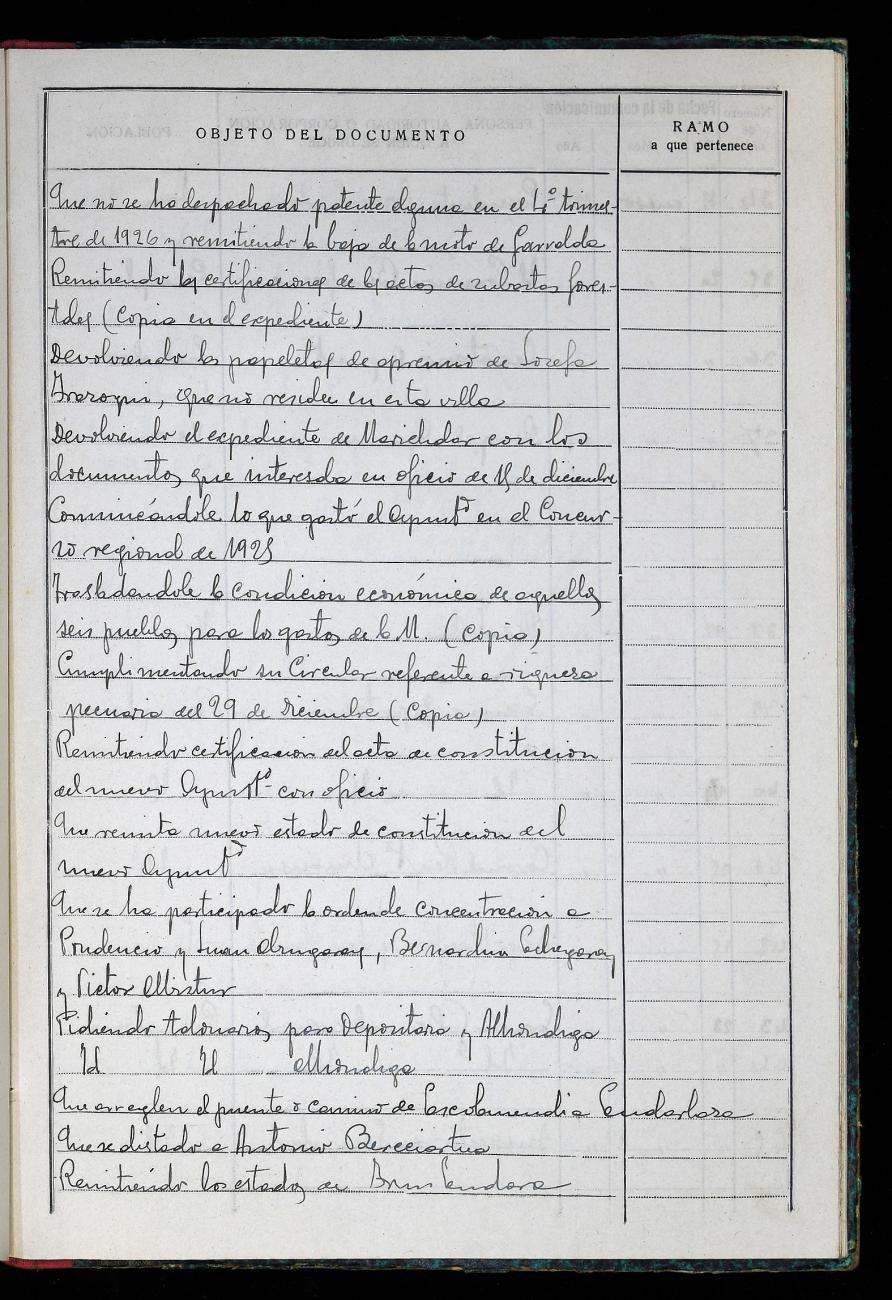 OBJETO DEL DOCUMENTO
RAMO
a que pertenece
Que no se ha despachado patente alguna en el 4º trimes-
tre de 1926 y remitiendo la baja de la moto de Garralda
Remitiendo las certificaciones de las actas de subastas fores-
tales (Copia en el expediente)
Devolviendo las papeletas de apremio de Josefa
Irazoqui, que no reside en esta villa
Devolviendo el expediente de Marichalar con los
documentos que interesaba en oficio de 11 de diciembre
Comunicándole lo que gastó el Ayuntº en el Concur-
so regional de 1925
Trasladandole la condicion económica de aquellos
seis pueblos para los gastos de la M. (Copia)
Cumplimentando su Circular referente a riqueza
pecuaria del 29 de diciembre (Copia)
Remitiendo certificacion del acta de constitucion
del nuevo Ayuntº con oficio
Que remita nuevo estado de constitucion del
nuevo Ayuntº
Que se ha participado la orden de concentracion a
Prudencio y Juan, Bernardino Echegaray
y Victor
Pidiendo talonarios para Depositaria y Alhondiga
Id Id Alhondiga
Que arreglen el puente o camino de Endarlaza
Que se dis tado a Antonio Berreiartua
Remitiendo los estados de